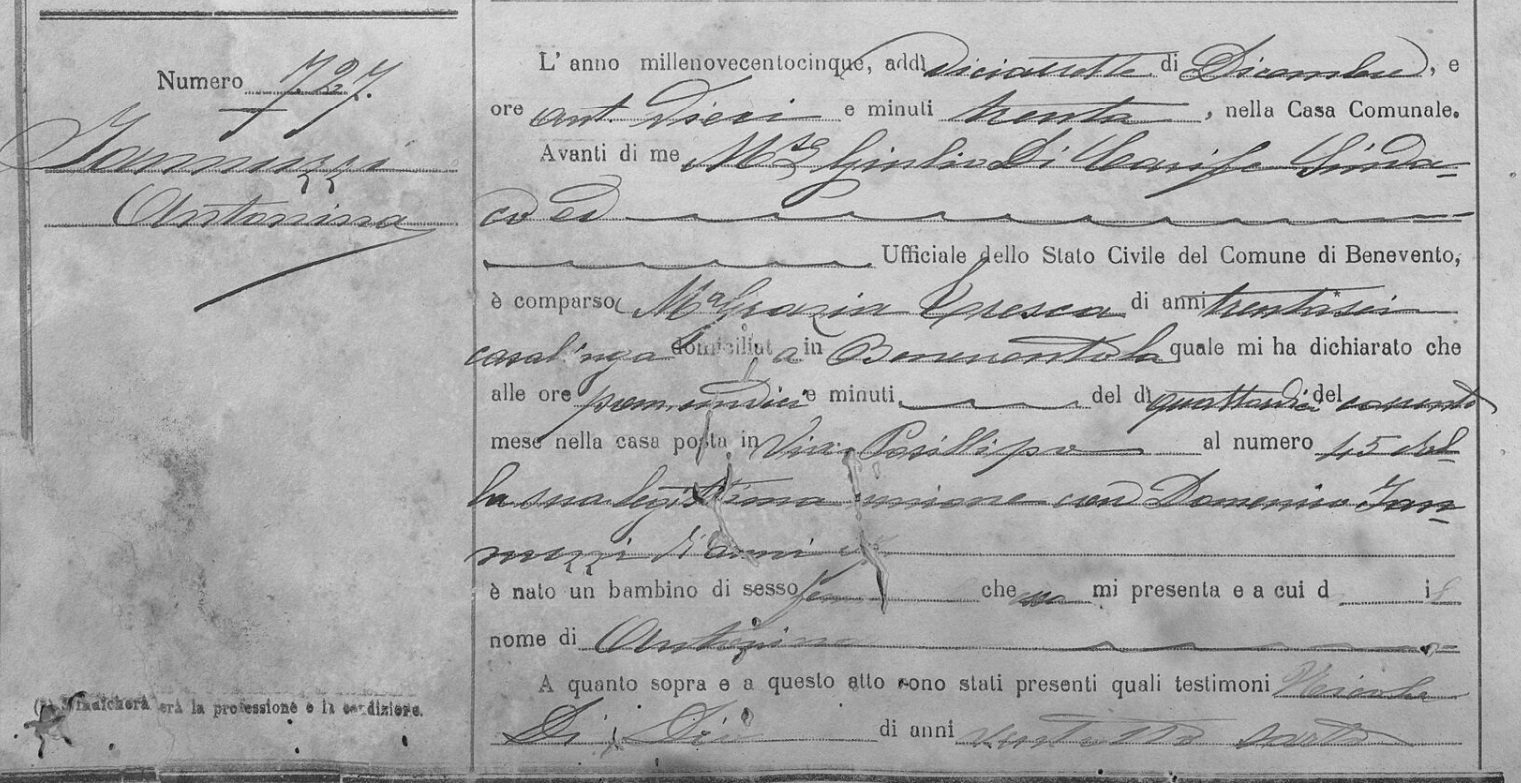 Numero 727.
Iannuzzi
Antonina
L'anno millenovecentocinque, addì diciasette di Dicembre, e
ore ant. dieci e minuti trenta, nella Casa Comunale.
Avanti di me Giulio Di Sinda-
co ed
Ufficiale dello Stato Civile del Comune di Benevento,
è comparsa Mª Grazia Cresca di anni trentasei
casalinga domiciliata in Benevento la quale mi ha dichiarato che
alle ore pom. undici e minuti del dì quattordici del corrente
mese nella casa posta in Via Posillipo al numero 45 dal
la sua legittima unione con Domenico Ian
nuzzi d'anni
è nato un bambino di sesso fem che mi presenta e a cui d i
nome di Antonina
A quanto sopra e a questo atto sono stati presenti quali testimoni Nicola
Di di anni ventotto sarto
(1) Indicherà la professione o la condizione.